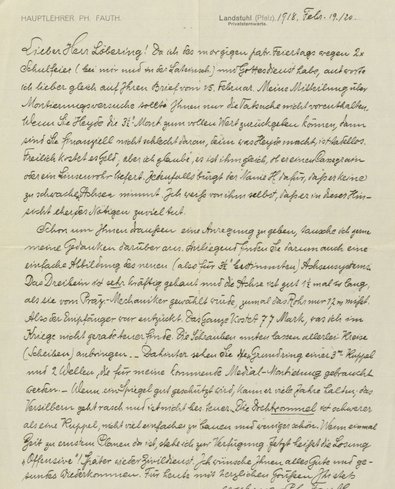 HAUPTLEHRER PH. FAUTH. Landstuhl (Pfalz), 1918. Febr. 19./20.
Privatsternwarte.
Lieber Herr Löbering! Da ich des morgigen Feiertags wegen 2x
Schulfeiet (bei mir und in der Lateinsch.) und Gottesdienst habe, antworte
ich lieber gleich auf Ihren Brief vom 15. Februar. Meine Mitteilung über
Montierungsversuche sollte Ihnen nur die Tatsache nicht vorenthalten.
Wenn Sie Heyde die 3½ Mark zum vollen Wert zurückgeben können, dann
sind Sie finanziell nicht schlecht daran, denn was Heyde macht, ist tadellos.
Freilich kostet es Geld, aber ich glaube, es ist ihm gleich, ob er einen
oder ein Linsenrohr liefert. Jedenfalls bürgt der Name H. dafür, daß er keine
zu schwache Achsen nimmt. Ich weiß von ihm selbst, daß er in dieser Hin-
sicht eher des Nötigen zuviel tut.
Schon um Ihnen draußen eine Anregung zu geben, tausche ich gerne
meine Gedanken darüber aus. Anliegend finden Sie darum auch eine
einfache Abbildung des neuen (also für 3½ bestimmten) Achsensystems.
Das Dreibein ist sehr kräftig gebaut und die Achse ist gut 1½ mal so lang,
als sie vom Präz.-Mechaniker gewählt würde, zumal das Rohr nur 1,2 m mißt.
Also der Empfänger war entzückt. Das Ganze kostet 77 Mark, was ich im
Kriege nicht gerade teuer finde. Die Schrauben unten lassen allerlei Kreise
(Scheiben) anbringen. — Dahinter sehen Sie den Grundring einer 3m Kuppel
und 2 Wellen, die für meine kommende Medial-Montierung gebraucht
werden. — Wenn ein Spiegel gut geschützt wird, kann er viele Jahre halten; das
Versilbern geht rasch und ist nicht sehr teuer. Die Drehtrommel ist schwerer
als eine Kuppel, nicht viel einfacher zu bauen und weniger schön. Wenn einmal
Zeit zu ernstem Planen da ist, stehe ich zur Verfügung. Jetzt heißt die Losung
„Offensive“! Später wieder Zivildienst. Ich wünsche Ihnen alles Gute und ge-
sundes Wiederkommen. Für heute mit herzlichen Grüßen Ihr stets